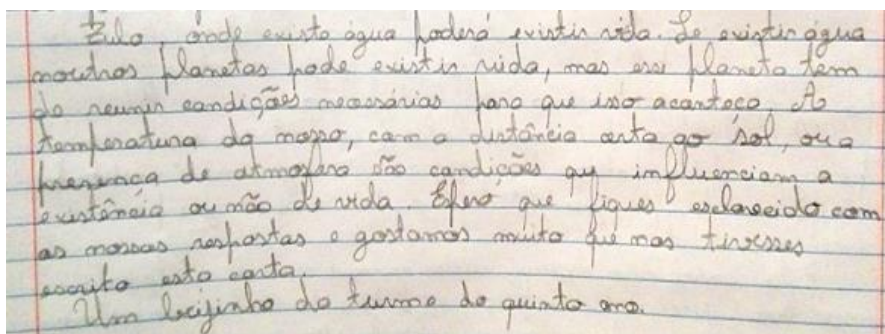 Zulo, onde existe água poderá existir vida. Se existir água
noutros planetas pode existir vida, mas esse planeta tem
de reunir condições necessárias para que isso aconteça. A
temperatura da nosso, com a distância certa ao sol, ou a
presença de atmosfera são condições que influenciam a
existência ou não de vida. Espero que fiques esclarecido com
as nossas respostas e gostamos muito que nos tivesses
escrito esta carta.
Um beijinho da turma do quinto ano.